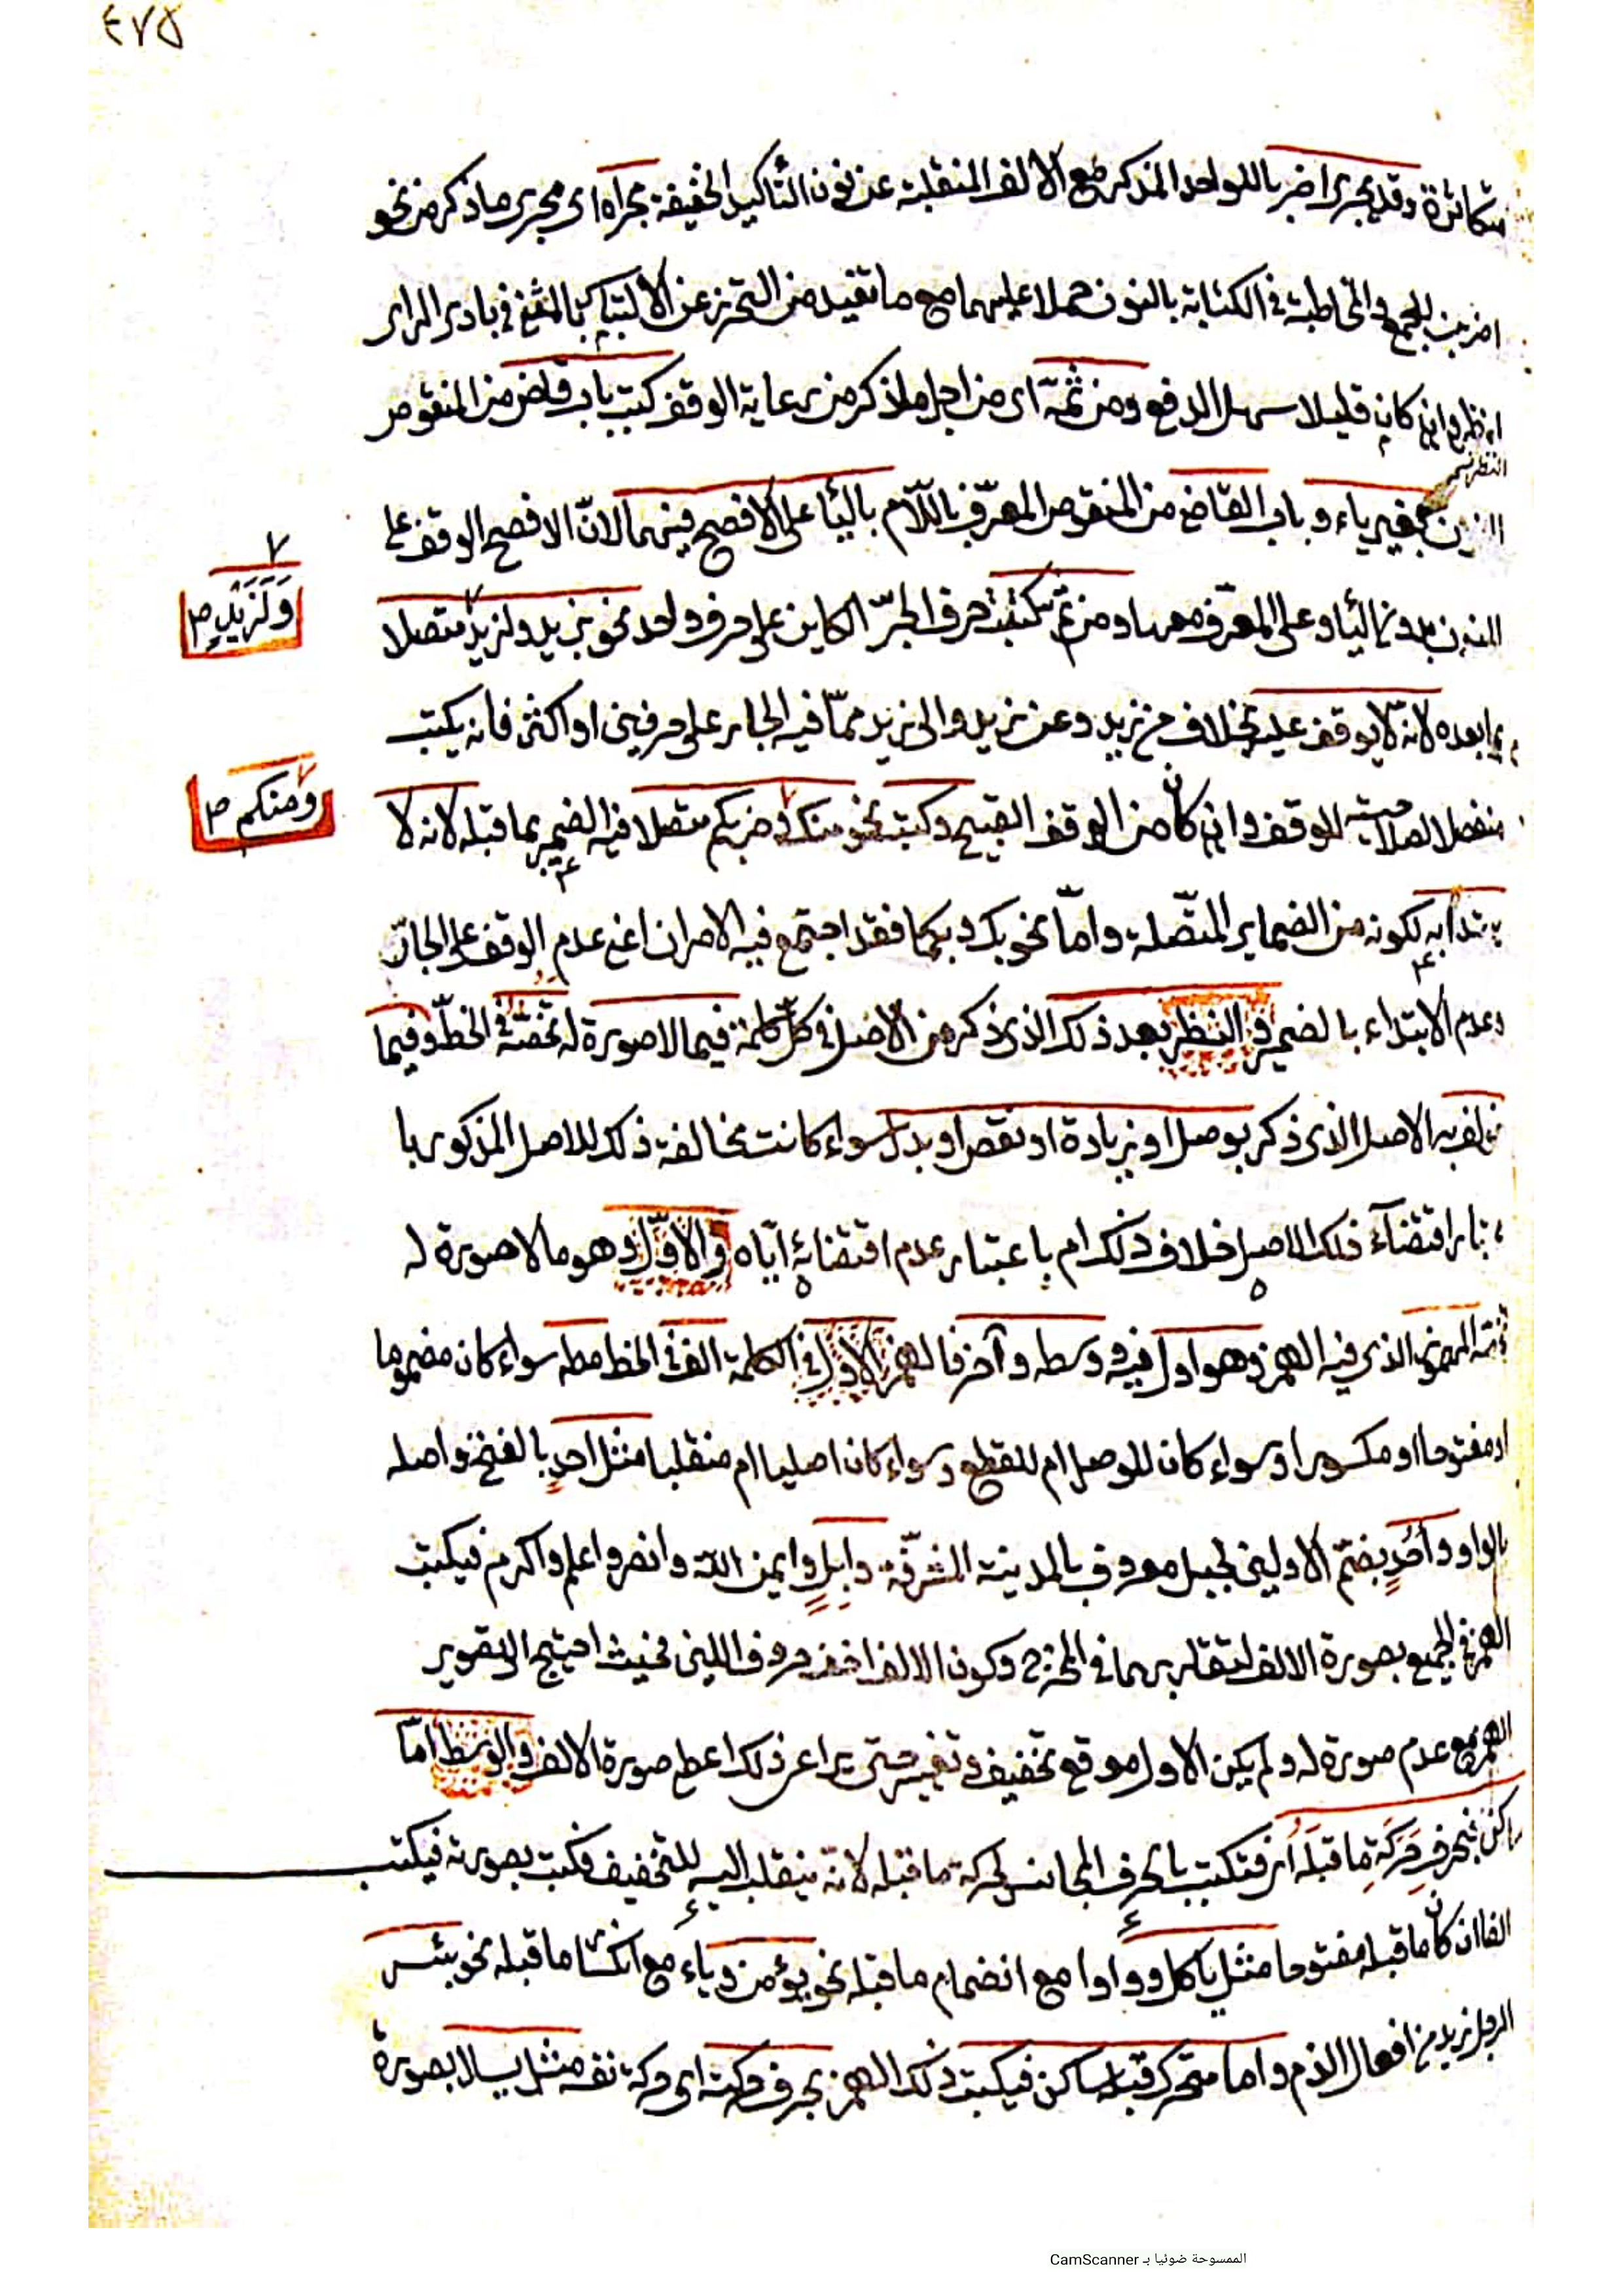 ٤٧٥
متكاثرة وقد يجرى اضربا للواحد المذكر مع الالف المنقلبة عن نون التأكيد الخفيفة مجراه اى مجرى ما ذكر من نحو
اضربن للجمع والمخاطبة فى الكتابة بالنون حملا عليهما مع ما تفيد من التحرز عن الالتباس بالمثنى فى بادى الراى
انظر وان كان قليلا سهل الدفع ومن ثمّة اى من اجل ما ذكر من رعاية الوقف كتب باب قاض من المنقوص
النظر نسـ
بغير ياء وباب القاضى من المنقوص المعرّف باللّام بالياء على الافصح فيهما لانّ الافصح الوقف على
المنون بدون الياء وعلى المعرّف معها ومن ثم كتبت حرف الجرّ الكاين على حرف واحد نحو بزيد ولزيد متصلا
وَلَزَيْدٍ صح
بما بعده لانّه لا يوقف عليه بخلاف من زيد وعن زيد والى زيد ممّا فيه الجار على حرفين او اكثر فانه يكتب
منفصلا لصلاحيته للوقف وان كان من الوقف القبيح وكتبت نحو منك وضربكم متصلا فيه الضمير بما قبله لانه لا
ومنكم صح
يبتدأ به لكونه من الضماير المتّصلة وامّا نحو بك وبكما فقد اجتمع فيه الامران اعنى عدم الوقف على الجارّ
وعدم الابتداء بالضمير والنظر بعد ذلك الذى ذكر من الاصل فى كلّ كلمة فيما لا صورة له تخصّه فى الخطّ وفيما
خولف به الاصل الذى ذكر بوصل او زيادة او نقص او بدل سواء كانت مخالفة ذلك للاصل المذكور با
عتبار اقتضآء ذلك الاصل خلاف ذلك ام باعتبار عدم اقتضائه ايّاه والاوّل وهو ما لا صورة له
تخصّه المهموز الذى فيه الهمز وهو اول فيه ووسط وآخر فالهمز الاوّل فى الكلمة الف فى الخط مطـ سواء كان مضموما
او مفتوحا او مكسورا وسواء كان للوصل ام للقطع وسواء كان اصليا ام منقلبا مثل احدٍ بالفتح واصله
بالواو وأُحُدٍ بضمّ الاولين لجبل معروف بالمدينة المشرّفة وابلٍ وايمن الله وانصر واعلم واكرم فيكتب
الهمز فى الجميع بصورة الالف لتقاربهما فى المخرج وكون الالف اخف حروف اللين فحيث احتيج الى تصوير
الهمز مع عدم صورة له ولم يكن الاول موقع تخفيف وتغيير حتى يراعى ذلك اعطى صورة الالف والوسط امّا
ساكن فبحرف حركة ما قبله اى فتكتب بالحرف المجانس لحركة ما قبله لانّه ينقلب اليه للتخفيف فكتب بصورته فيكتب
الفا ان كان ما قبله مفتوحا مثل يأكل وواوا مع انضمام ما قبله نحو يؤمن وياء مع انكسار ما قبله نحو بئس
الرجل زيد من افعال الذم واما متحرك قبله ساكن فيكتب ذلك الهمز بحرف حركته اى حركة نفسه مثل يسال بصورة
الممسوحة ضوئيا بـ CamScanner